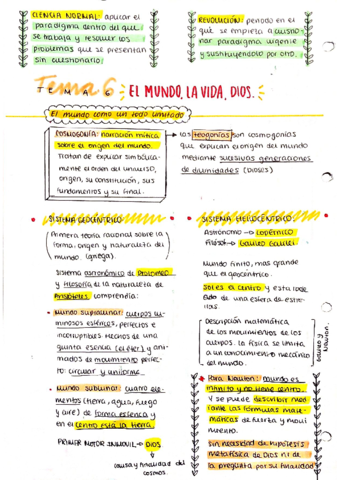 CIENCIA NORMAL: aplicar el
paradigma dentro del que
se trabaja y resolver los
problemas que se presentan
sin cuestionarlo.
REVOLUCIÓN: periodo en el
que se empieza a cuestio-
nar paradigma vigente
y sustituyéndolo por otro.
Tema 6
TEMA 6 EL MUNDO, LA VIDA, DIOS.
El mundo como un todo limitado
COSMOGONÍA: narración mítica
sobre el origen del mundo.
Tratan de explicar simbólica-
mente el orden del universo,
origen, su constitución, sus
fundamentos y su final.
Las teogonías son cosmogonías
que explican el origen del mundo
mediante sucesivas generaciones
de divinidades (DIOSES)
SISTEMA GEOCÉNTRICO
Primera teoría racional sobre la
forma, origen y naturaleza del
mundo. (griega).
Sistema astronómico de Ptolomeo
y filosofía de la naturaleza de
Aristóteles comprendía:
Mundo supralunar: cuerpos lu-
minosos esféricos, perfectos e
incorruptibles hechos de una
quinta esencia (el éter) y ani-
mados de movimiento perfec-
to: circular y uniforme.
Mundo sublunar: cuatro ele-
mentos (tierra, agua, fuego
y aire) de forma esférica y
en el centro está la tierra.
PRIMER MOTOR INMÓVIL → DIOS
causa y finalidad del
cosmos.
SISTEMA HELIOCÉNTRICO
Astrónomo → COPÉRNICO
Filósof → Galileo Galilei
Mundo finito, mas grande
que el geocéntrico.
Sol es el centro y está
de una esfera de estre-
llas.
Descripción matemática
de los movimientos de los
cuerpos. La física se limita
a un conocimiento mecánico
del mundo.
Galileo y
Newton.
Para Newton: mundo es
infinito y no tiene centro.
Y se puede describir med
iante las fórmulas mate-
máticas de fuerza y movi
miento.
Sin necesidad de hipótesis
metafísica de Dios ni de
la pregunta por su finalidad